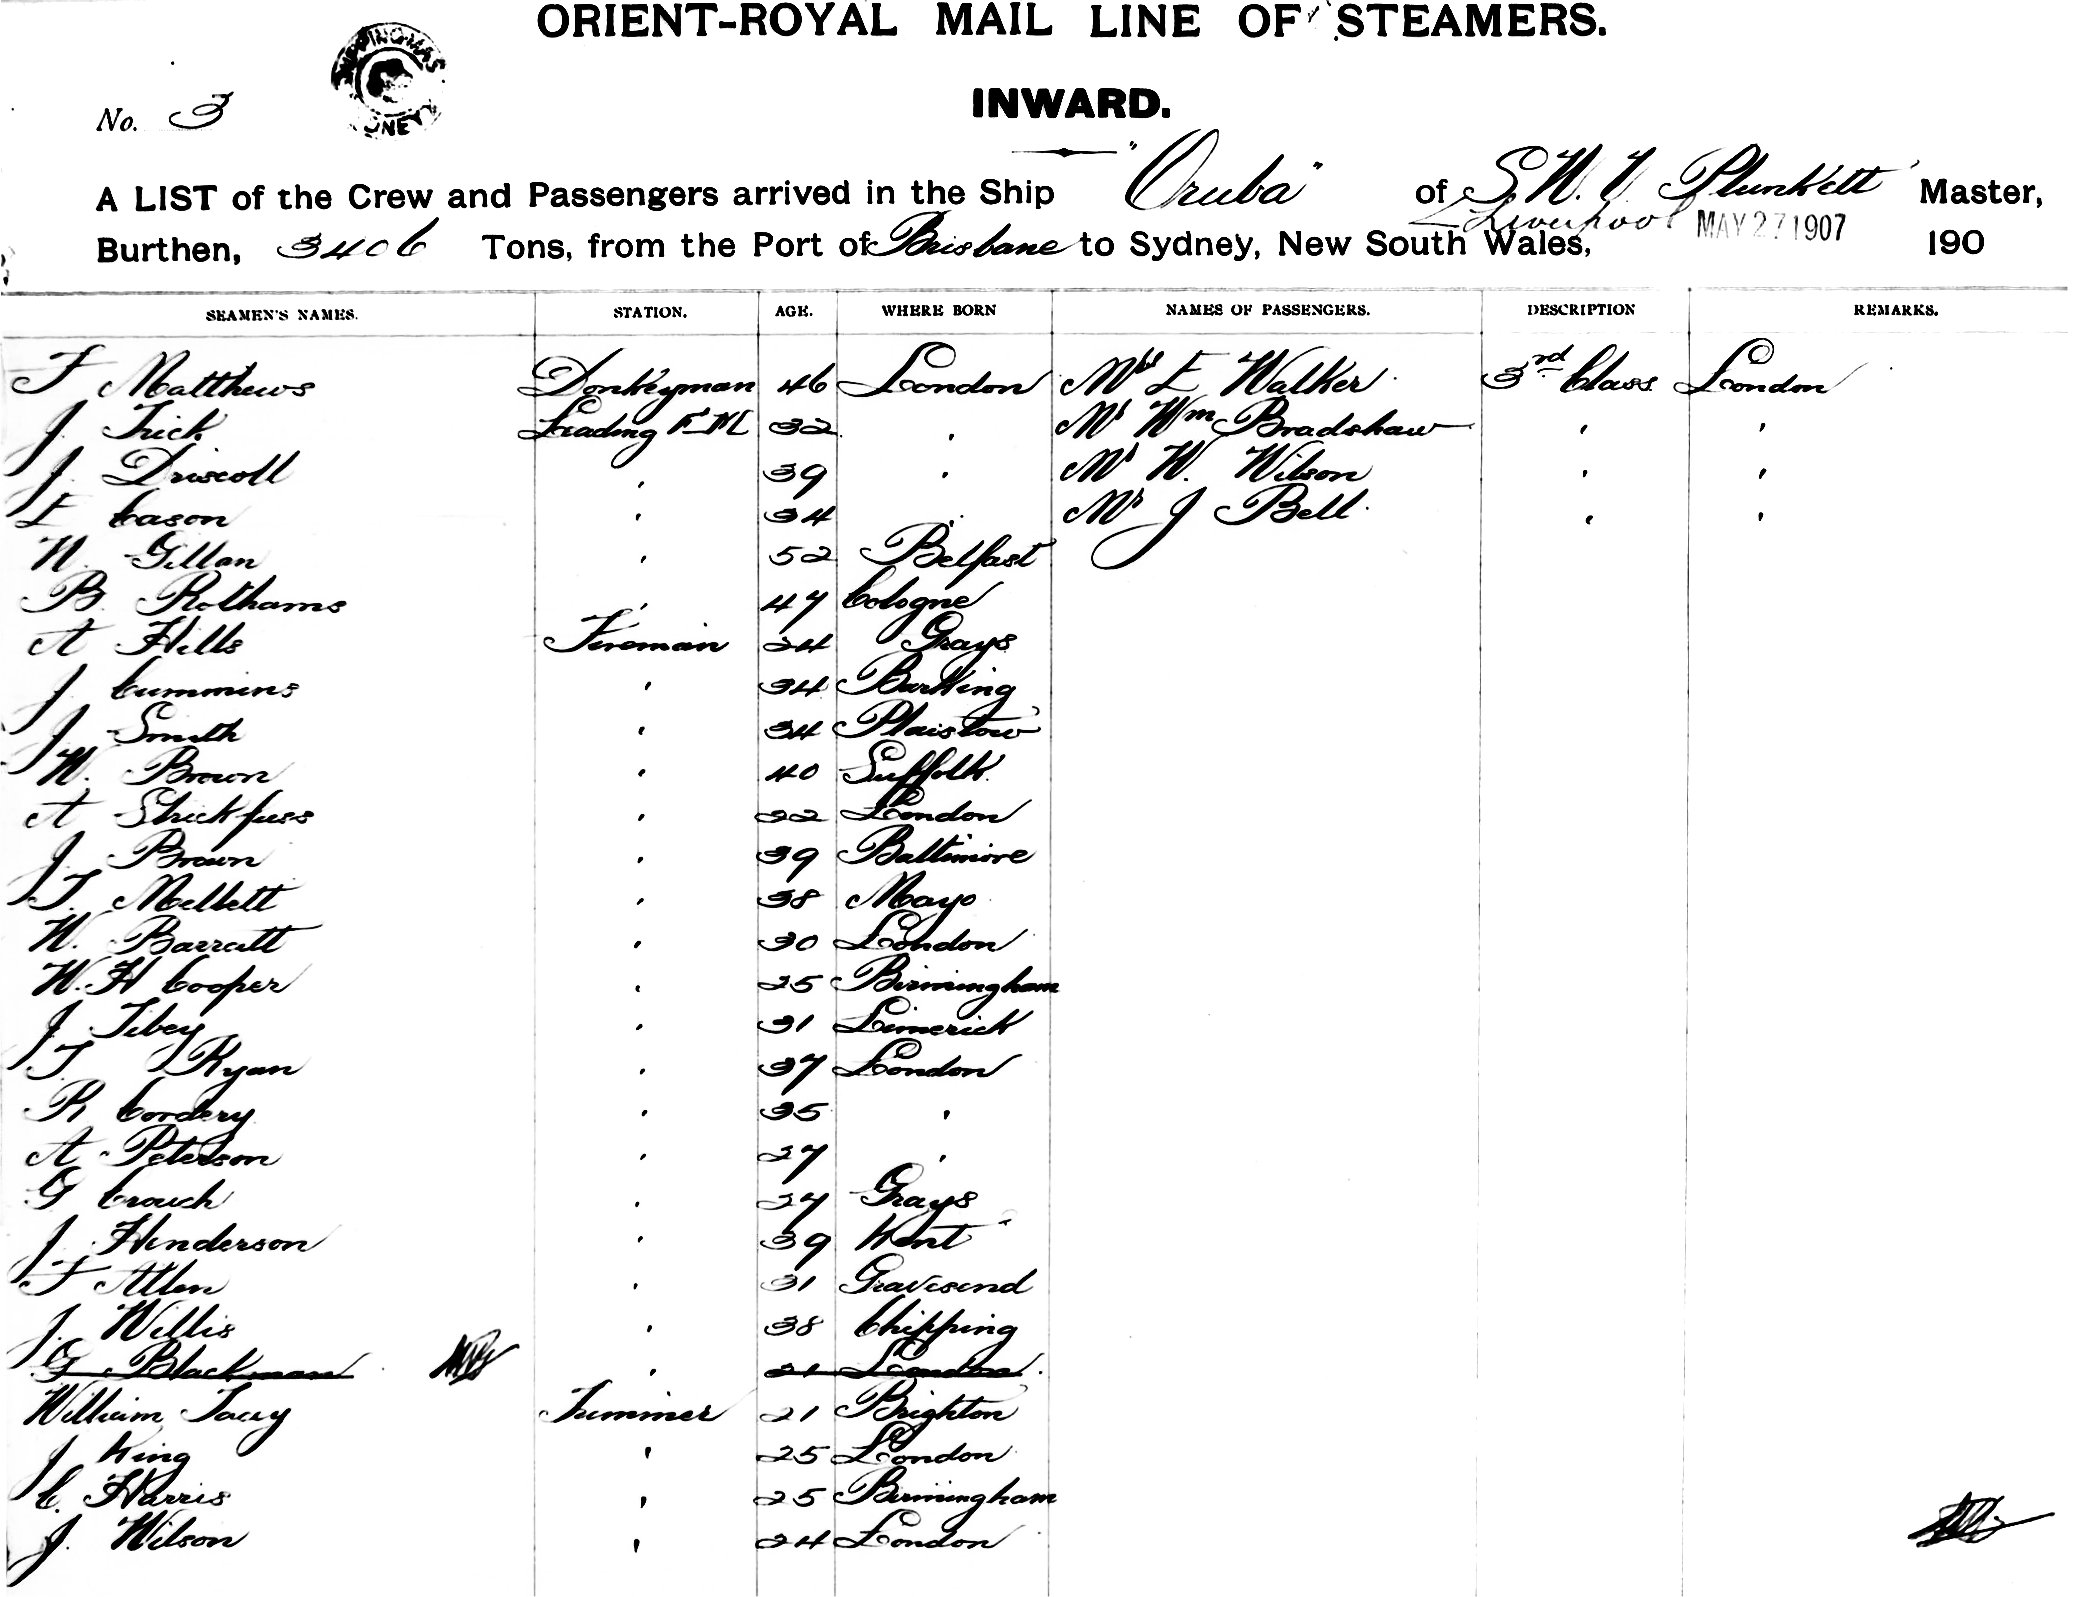 ORIENT-ROYAL MAIL LINE OF STEAMERS.
No. 3
INWARD.
A LIST of the Crew and Passengers arrived in the Ship "Oruba" of Plunkett Master,
Liverpool
Burthen, 3406 Tons, from the Port of Brisbane to Sydney, New South Wales, MAY 27 1907 190
SEAMEN'S NAMES. STATION. AGE. WHERE BORN NAMES OF PASSENGERS. DESCRIPTION REMARKS.
F Matthews Donkeyman 46 London E Walker 3rd Class London
J. Trick Leading F.M 32 " Mr Wm Bradshaw " "
J. Driscoll " 39 " Mr W. Wilson " "
E Cason " 34 " Mr J Bell " "
W. Gillan " 52 Belfast
B. Rothams " 47 Cologne
A Hills Fireman 24 Grays
J Cummins " 34 Barking
J Smith " 34 Plaistow
W. Brown " 40 Suffolk
A Strickfuss " 22 London
J. Brown " 39 Baltimore
T. Mellett " 38 Mayo
W. Barratt " 30 London
W. H Cooper " 25 Birmingham
J Tibey " 31 Limerick
T Ryan " 37 London
R Cordery " 35 "
A Peterson " 27 "
G Crouch " 27 Grays
J Henderson " 39 Kent
F Allen " 31 Gravesend
J. Willis " 38 Chipping
G Blackman " 21 London
William Tacey Trimmer 21 Brighton
J King " 25 London
C. Harris " 25 Birmingham
J. Wilson " 24 London